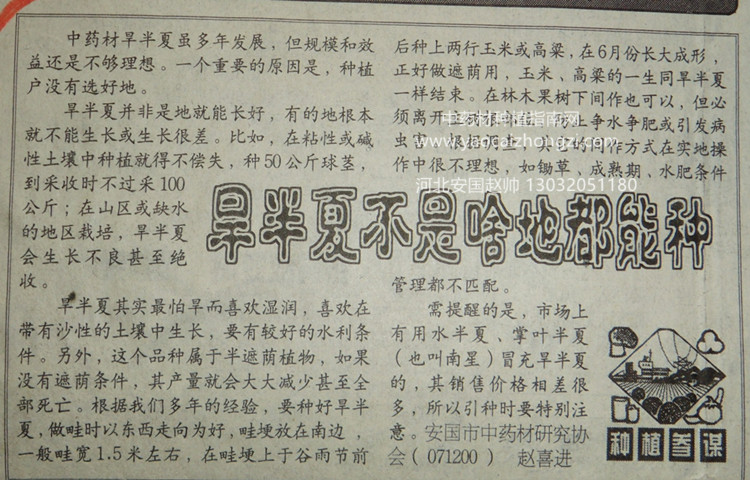 旱半夏不是啥地都能种
中药材旱半夏虽多年发展，但规模和效
益还是不够理想。一个重要的原因是，种植
户没有选好地。
旱半夏并非是地就能长好，有的地根本
就不能生长或生长很差。比如，在粘性或碱
性土壤中种植就得不偿失，种50公斤球茎，
到采收时不过采100
公斤；在山区或缺水
的地区栽培，旱半夏
会生长不良甚至绝
收。
旱半夏其实最怕旱而喜欢湿润，喜欢在
带有沙性的土壤中生长，要有较好的水利条
件。另外，这个品种属于半遮荫植物，如果
没有遮荫条件，其产量就会大大减少甚至全
部死亡。根据我们多年的经验，要种好旱半
夏，做畦时以东西走向为好，畦埂放在南边，
一般畦宽1.5米左右，在畦埂上于谷雨节前
后种上两行玉米或高粱，在6月份长大成形，
正好做遮荫用，玉米、高粱的一生同旱半夏
一样结束。在林木果树下间作也可以，但必
须离开
止争水争肥或引发病
虫害
作方式在实地操
作中很不理想，如锄草、成熟期、水肥条件
管理都不匹配。
需提醒的是，市场上
有用水半夏、掌叶半夏
（也叫南星）冒充旱半夏
的，其销售价格相差很
多，所以引种时要特别注
意。安国市中药材研究协
会（071200） 赵喜进
种植参谋
中药材种植指南网
www.yaocaizhongzi.com
河北安国赵帅 13032051180